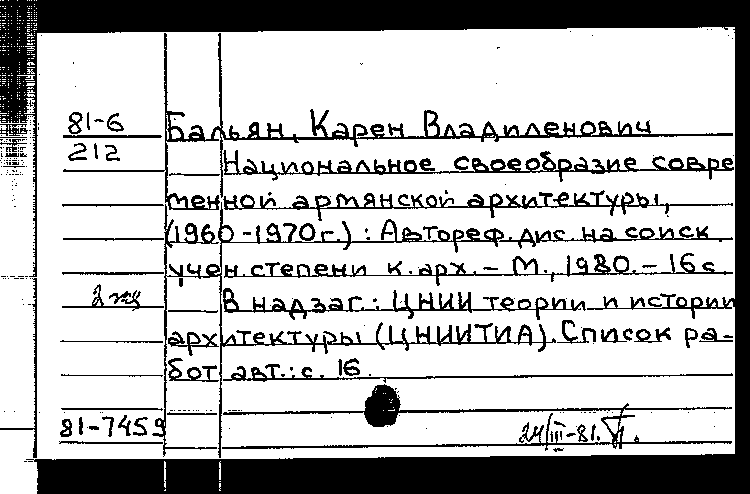 81-6 Бальян, Карен Владиленович
212 Национальное своеобразие совре
менной армянской архитектуры,
(1960-1970г.): Автореф. дис. на соиск.
учен. степени к. арх. – М., 1980. – 16 с.
2 экз В надзаг.: ЦНИИ теории и истории
архитектуры (ЦНИИТИА). Список ра-
бот авт.: с. 16.
81-7459 24/III-81.